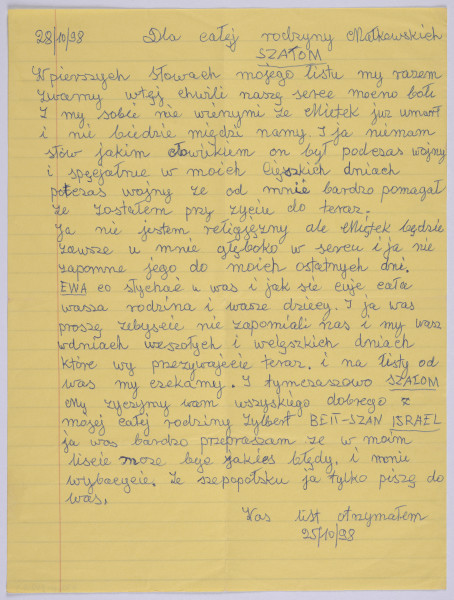 28/10/98 Dla całej rodzyny Małkowskich
SZAŁOM
W pierszych słowach mojego listu my razem
zwamy wtej chwili naszę serce mocno boli
I my sobie nie wienymi że Miętek już umarł
i nie biedzie międzi namy. I ja niemam
słów jakim człowiekiem on był podczas wojny
i specjalnie w moich cięszkich dniach
potczas wojny że od mnie bardzo pomagał
że zostałem przy życiu do teraz.
Ja nie jestem religijęzny ale Miętek będzie
zawsze u mnie głęboko w sercu i ja nie
zapomne jego do moich ostatnych dni.
EWA co słychać u was i jak sie cuje cała
wasza rodzina i wasze dziecy. I ja was
proszę żebyscie nie zapomiali nas i my was
wdniach wesołych i welęszkich dniach
które wy przezywajecie teraz. i na listy od
was my czekamy. I tymczaszowo SZAŁOM
My życzymy wam wszyskiego dobrego z
mojej całej rodziny Zylbert BEIT-SZAN ISRAEL
ja was bardzo przepraszam że w moim
liscie może byc jakies błędy. i mnie
wybaczycie. Że szepopolsku ja tylko piszę do
was.
Was list otrzymałem
25/10/98